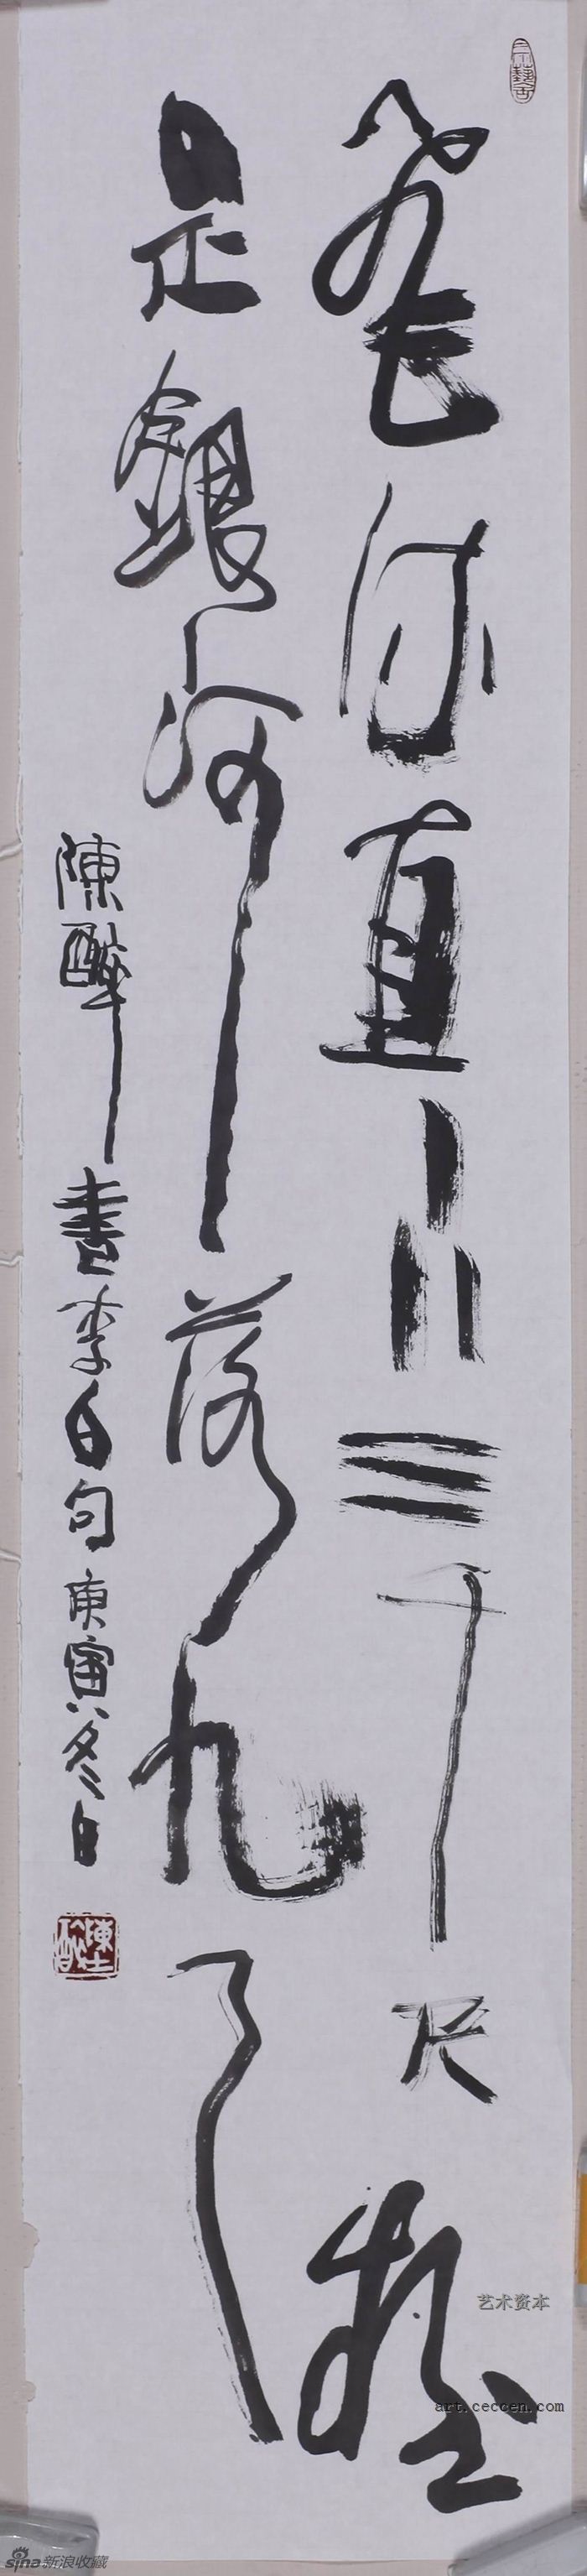 飛流直下三千尺疑
是銀河落九天
陳醉書李白句庚寅冬日
艺术资本
art.ceccen.com
sina新浪收藏